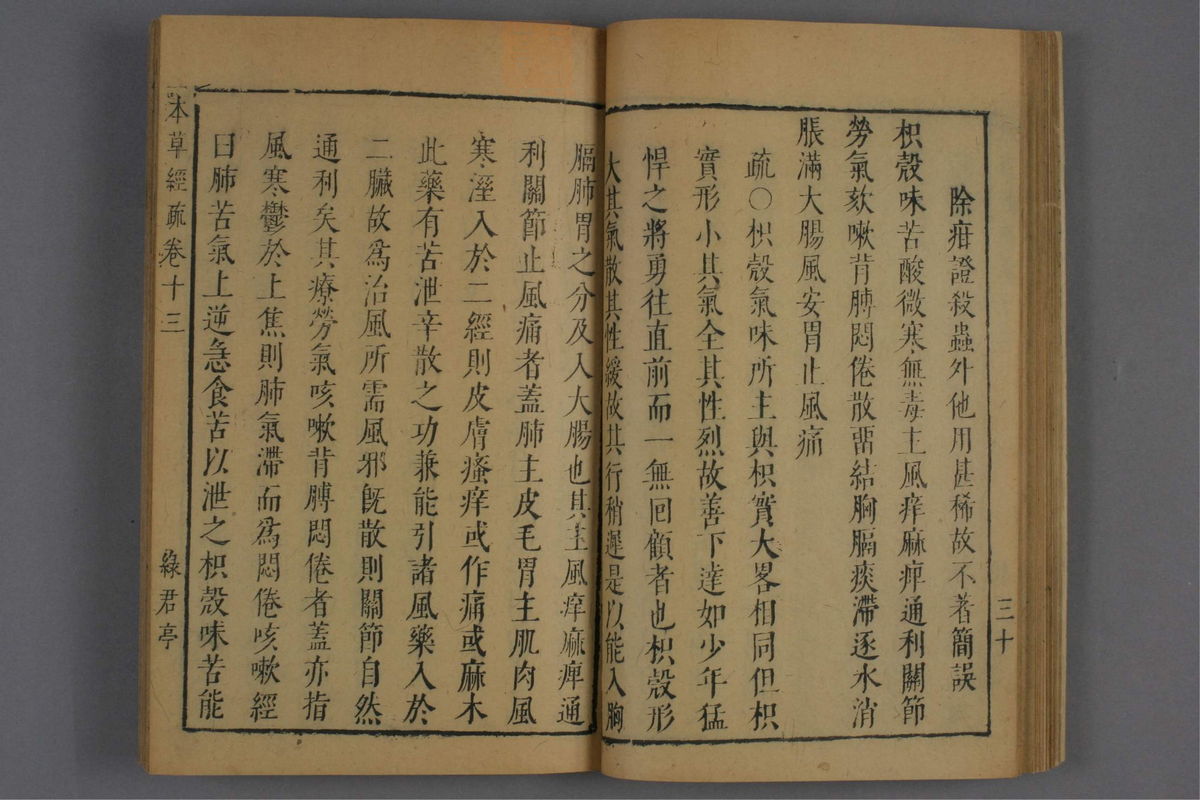 三十
除疳證殺蟲外他用甚稀故不著簡誤
枳殼味苦酸微寒無毒主風痒麻痺通利關節
勞氣欬嗽背膊悶倦散畱結胸膈痰滯逐水消
脹滿大腸風安胃止風痛
疏〇枳殼氣味所主與枳實大畧相同但枳
實形小其氣全其性烈故善下達如少年猛
悍之將勇往直前而一無回顧者也枳殼形
大其氣散其性緩故其行稍遲是以能入胸
膈肺胃之分及入大腸也其主風痒麻痺通
利關節止風痛者蓋肺主皮毛胃主肌肉風
寒溼入於二經則皮膚瘙痒或作痛或麻木
此藥有苦泄辛散之功兼能引諸風藥入於
二臟故爲治風所需風邪旣散則關節自然
通利矣其療勞氣咳嗽背膊悶倦者蓋亦指
風寒鬱於上焦則肺氣滯而爲悶倦咳嗽經
曰肺苦氣上逆急食苦以泄之枳殼味苦能
本草經疏卷十三
綠君亭